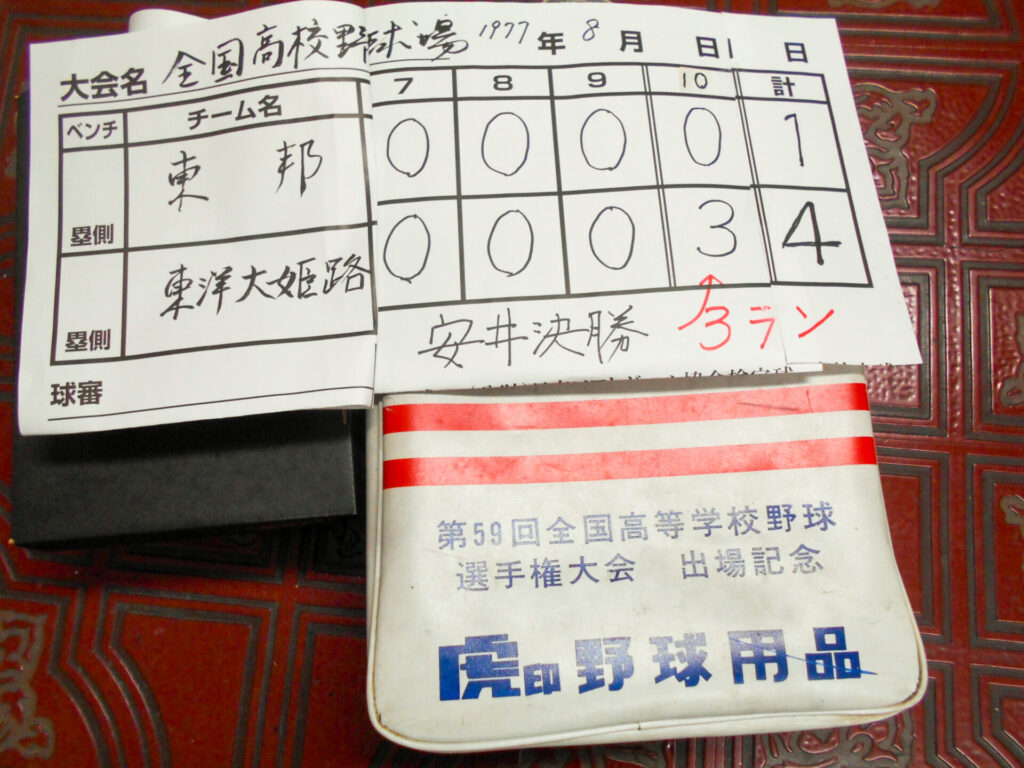 大会名 全国高校野球場 1977年 8月 日 日
ベンチ チーム名 7 8 9 10 計
塁側 東邦 0 0 0 0 1
塁側 東洋大姫路 0 0 0 3 4
球審 安井決勝 3ラン
第59回全国高等学校野球
選手権大会 出場記念
虎印野球用品